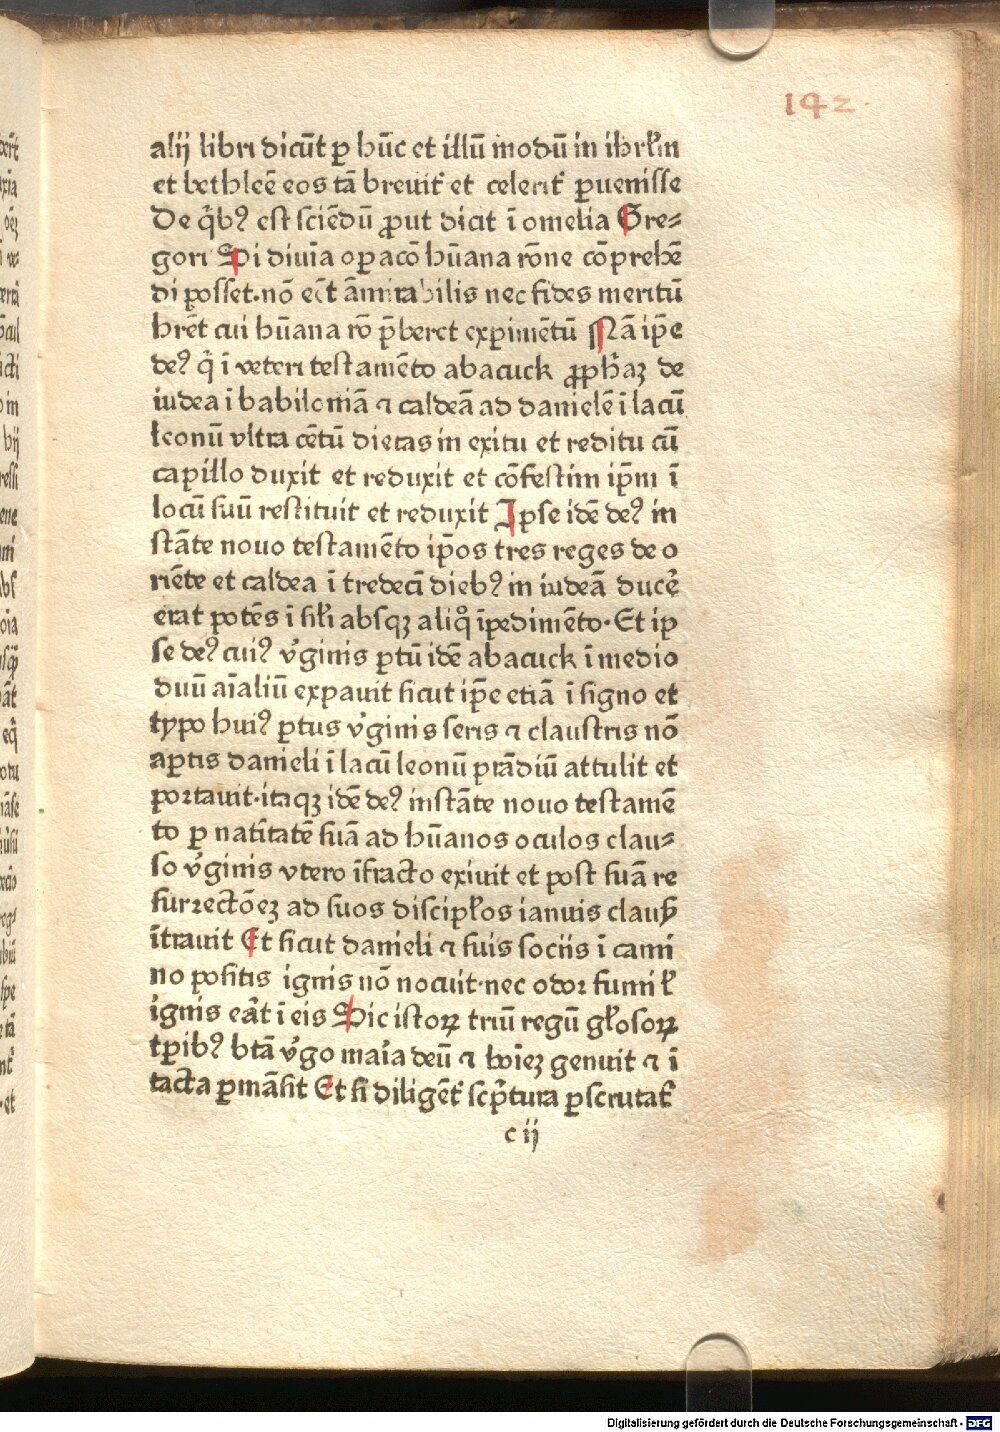 142
alij libri dicūt p̱ hūc et illū modū in ihrłm
et bethleē eos tā breuit̉ et celerit̉ p̱uenisse
De q̉bꝰ est sciēdū ꝓut dicit ī omelia Gre⸗
gori Si diuīa op̱acō hūana rōne cōprehē
di posset·nō eēt āmirabilis nec fides meritū
hr̄et cui hūana rō p̄beret exp̱imētū Nā ip̄e
deꝰ q̉ ī veteri testamēto abacuck ꝓph̄aꝫ de
iudea ī babiloniā ⁊ caldeā ad danielē ī lacū
leonū vltra cētū dietas in exitu et reditu cū
capillo duxit et reduxit et cōfestim ip̄m ī
locū suū restituit et reduxit Ipse idē deꝰ in
stāte nouo testamēto ip̄os tres reges de o
riēte et caldea ī tredecī diebꝰ in iudeā ducē
erat potēs ī sil̄i absqꝫ aliq̉ īpedimēto·Et ip
se deꝰ cuiꝰ v̉ginis p̱tū idē abacuck ī medio
duū aīaliū expauit sicut ip̄e etiā ī signo et
typo huiꝰ p̱tus v̉ginis seris ⁊ claustris nō
ap̱tis danieli ī lacū leonū prādiū attulit et
portauit·itaqꝫ idē deꝰ instāte nouo testamē
to p̱ natītatē suā ad hūanos oculos clau⸗
so v̉ginis vtero īfracto exiuit et post suā re
surrectōeꝫ ad suos discipłos ianuis claus̉
ītrauit Et sicut danieli ⁊ suis sociis ī cami
no positis ignis nō nocuit·nec odor fumi ł
ignis eāt ī eis Sic istoꝝ triū regū głosoꝝ
tp̱ibꝰ btā v̉go maīa deū ⁊ hoīeꝫ genuit ⁊ ī
tacta p̱māsit Et si diligēt̉ scp̄tura p̱scrutat̉
c ij
Digitalisierung gefördert durch die Deutsche Forschungsgemeinschaft - DFG